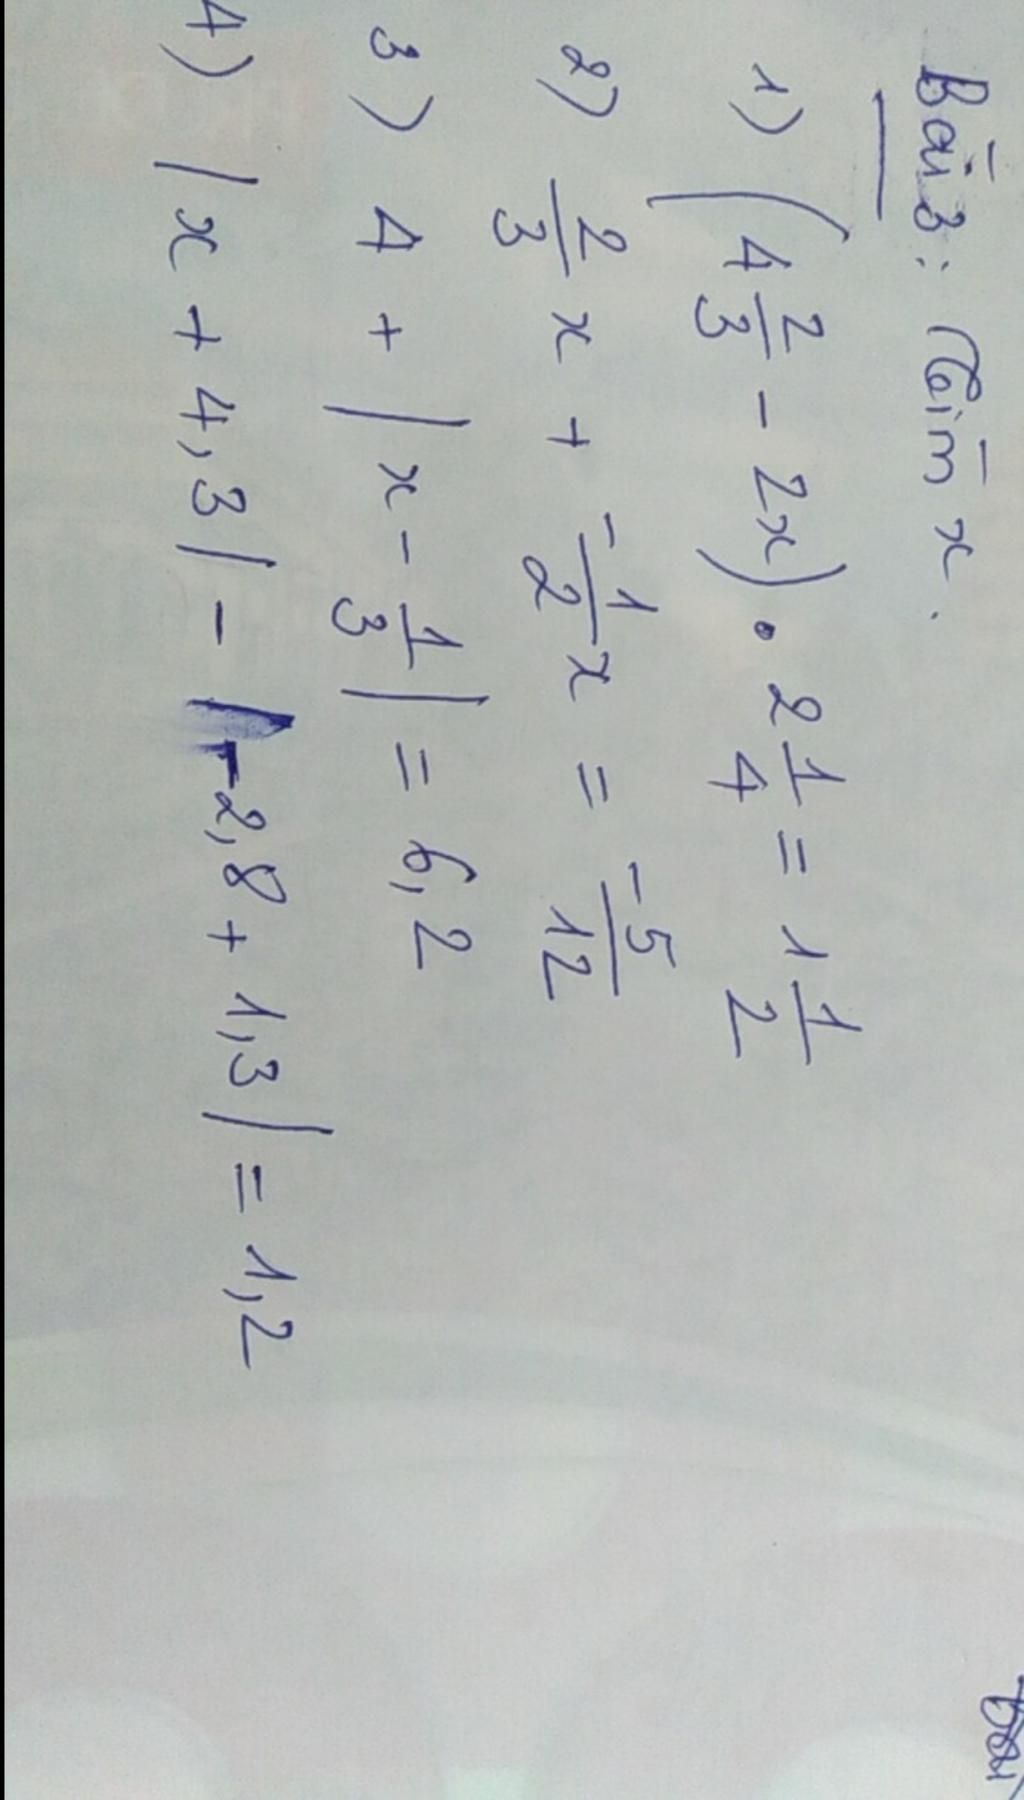 Bài 3: Tìm x.
1) (4 2/3 - 2x) . 2 1/4 = 1 1/2
2) 2/3 x + -1/2 x = -5/12
3) 4 + |x - 1/3| = 6,2
4) |x + 4,3| - |-2,8 + 1,3| = 1,2